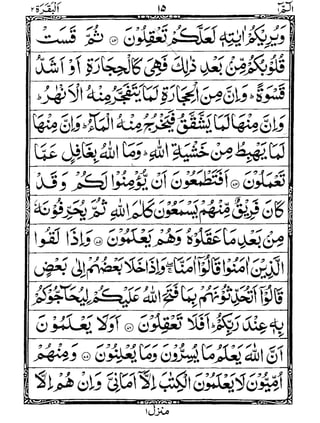 الٓمّٓ ١ ١٥ البقرة ٢
وَيُرِيكُمْ اٰيٰتِهٖ لَعَلَّكُمْ تَعْقِلُوْنَ ۝٧٣ ثُمَّ قَسَتْ
قُلُوْبُكُمْ مِّنْۢ بَعْدِ ذٰلِكَ فَهِيَ كَالْحِجَارَةِ اَوْ اَشَدُّ
قَسْوَةً ؕ وَاِنَّ مِنَ الْحِجَارَةِ لَمَا يَتَفَجَّرُ مِنْهُ الْاَنْهٰرُ ؕ
وَاِنَّ مِنْهَا لَمَا يَشَّقَّقُ فَيَخْرُجُ مِنْهُ الْمَآءُ ؕ وَاِنَّ مِنْهَا
لَمَا يَهْبِطُ مِنْ خَشْيَةِ اللّٰهِ ؕ وَمَا اللّٰهُ بِغَافِلٍ عَمَّا
تَعْمَلُوْنَ ۝٧٤ اَفَتَطْمَعُوْنَ اَنْ يُّؤْمِنُوْا لَكُمْ وَقَدْ
كَانَ فَرِيْقٌ مِّنْهُمْ يَسْمَعُوْنَ كَلٰمَ اللّٰهِ ثُمَّ يُحَرِّفُوْنَهٗ
مِنْۢ بَعْدِ مَا عَقَلُوْهُ وَهُمْ يَعْلَمُوْنَ ۝٧٥ وَاِذَا لَقُوا
الَّذِيْنَ اٰمَنُوْا قَالُوْٓا اٰمَنَّا ۖ وَاِذَا خَلَا بَعْضُهُمْ اِلٰى بَعْضٍ
قَالُوْٓا اَتُحَدِّثُوْنَهُمْ بِمَا فَتَحَ اللّٰهُ عَلَيْكُمْ لِيُحَآجُّوْكُمْ
بِهٖ عِنْدَ رَبِّكُمْ ؕ اَفَلَا تَعْقِلُوْنَ ۝٧٦ اَوَلَا يَعْلَمُوْنَ
اَنَّ اللّٰهَ يَعْلَمُ مَا يُسِرُّوْنَ وَمَا يُعْلِنُوْنَ ۝٧٧ وَمِنْهُمْ
اُمِّيُّوْنَ لَا يَعْلَمُوْنَ الْكِتٰبَ اِلَّآ اَمَانِيَّ وَاِنْ هُمْ اِلَّا
منزل ١